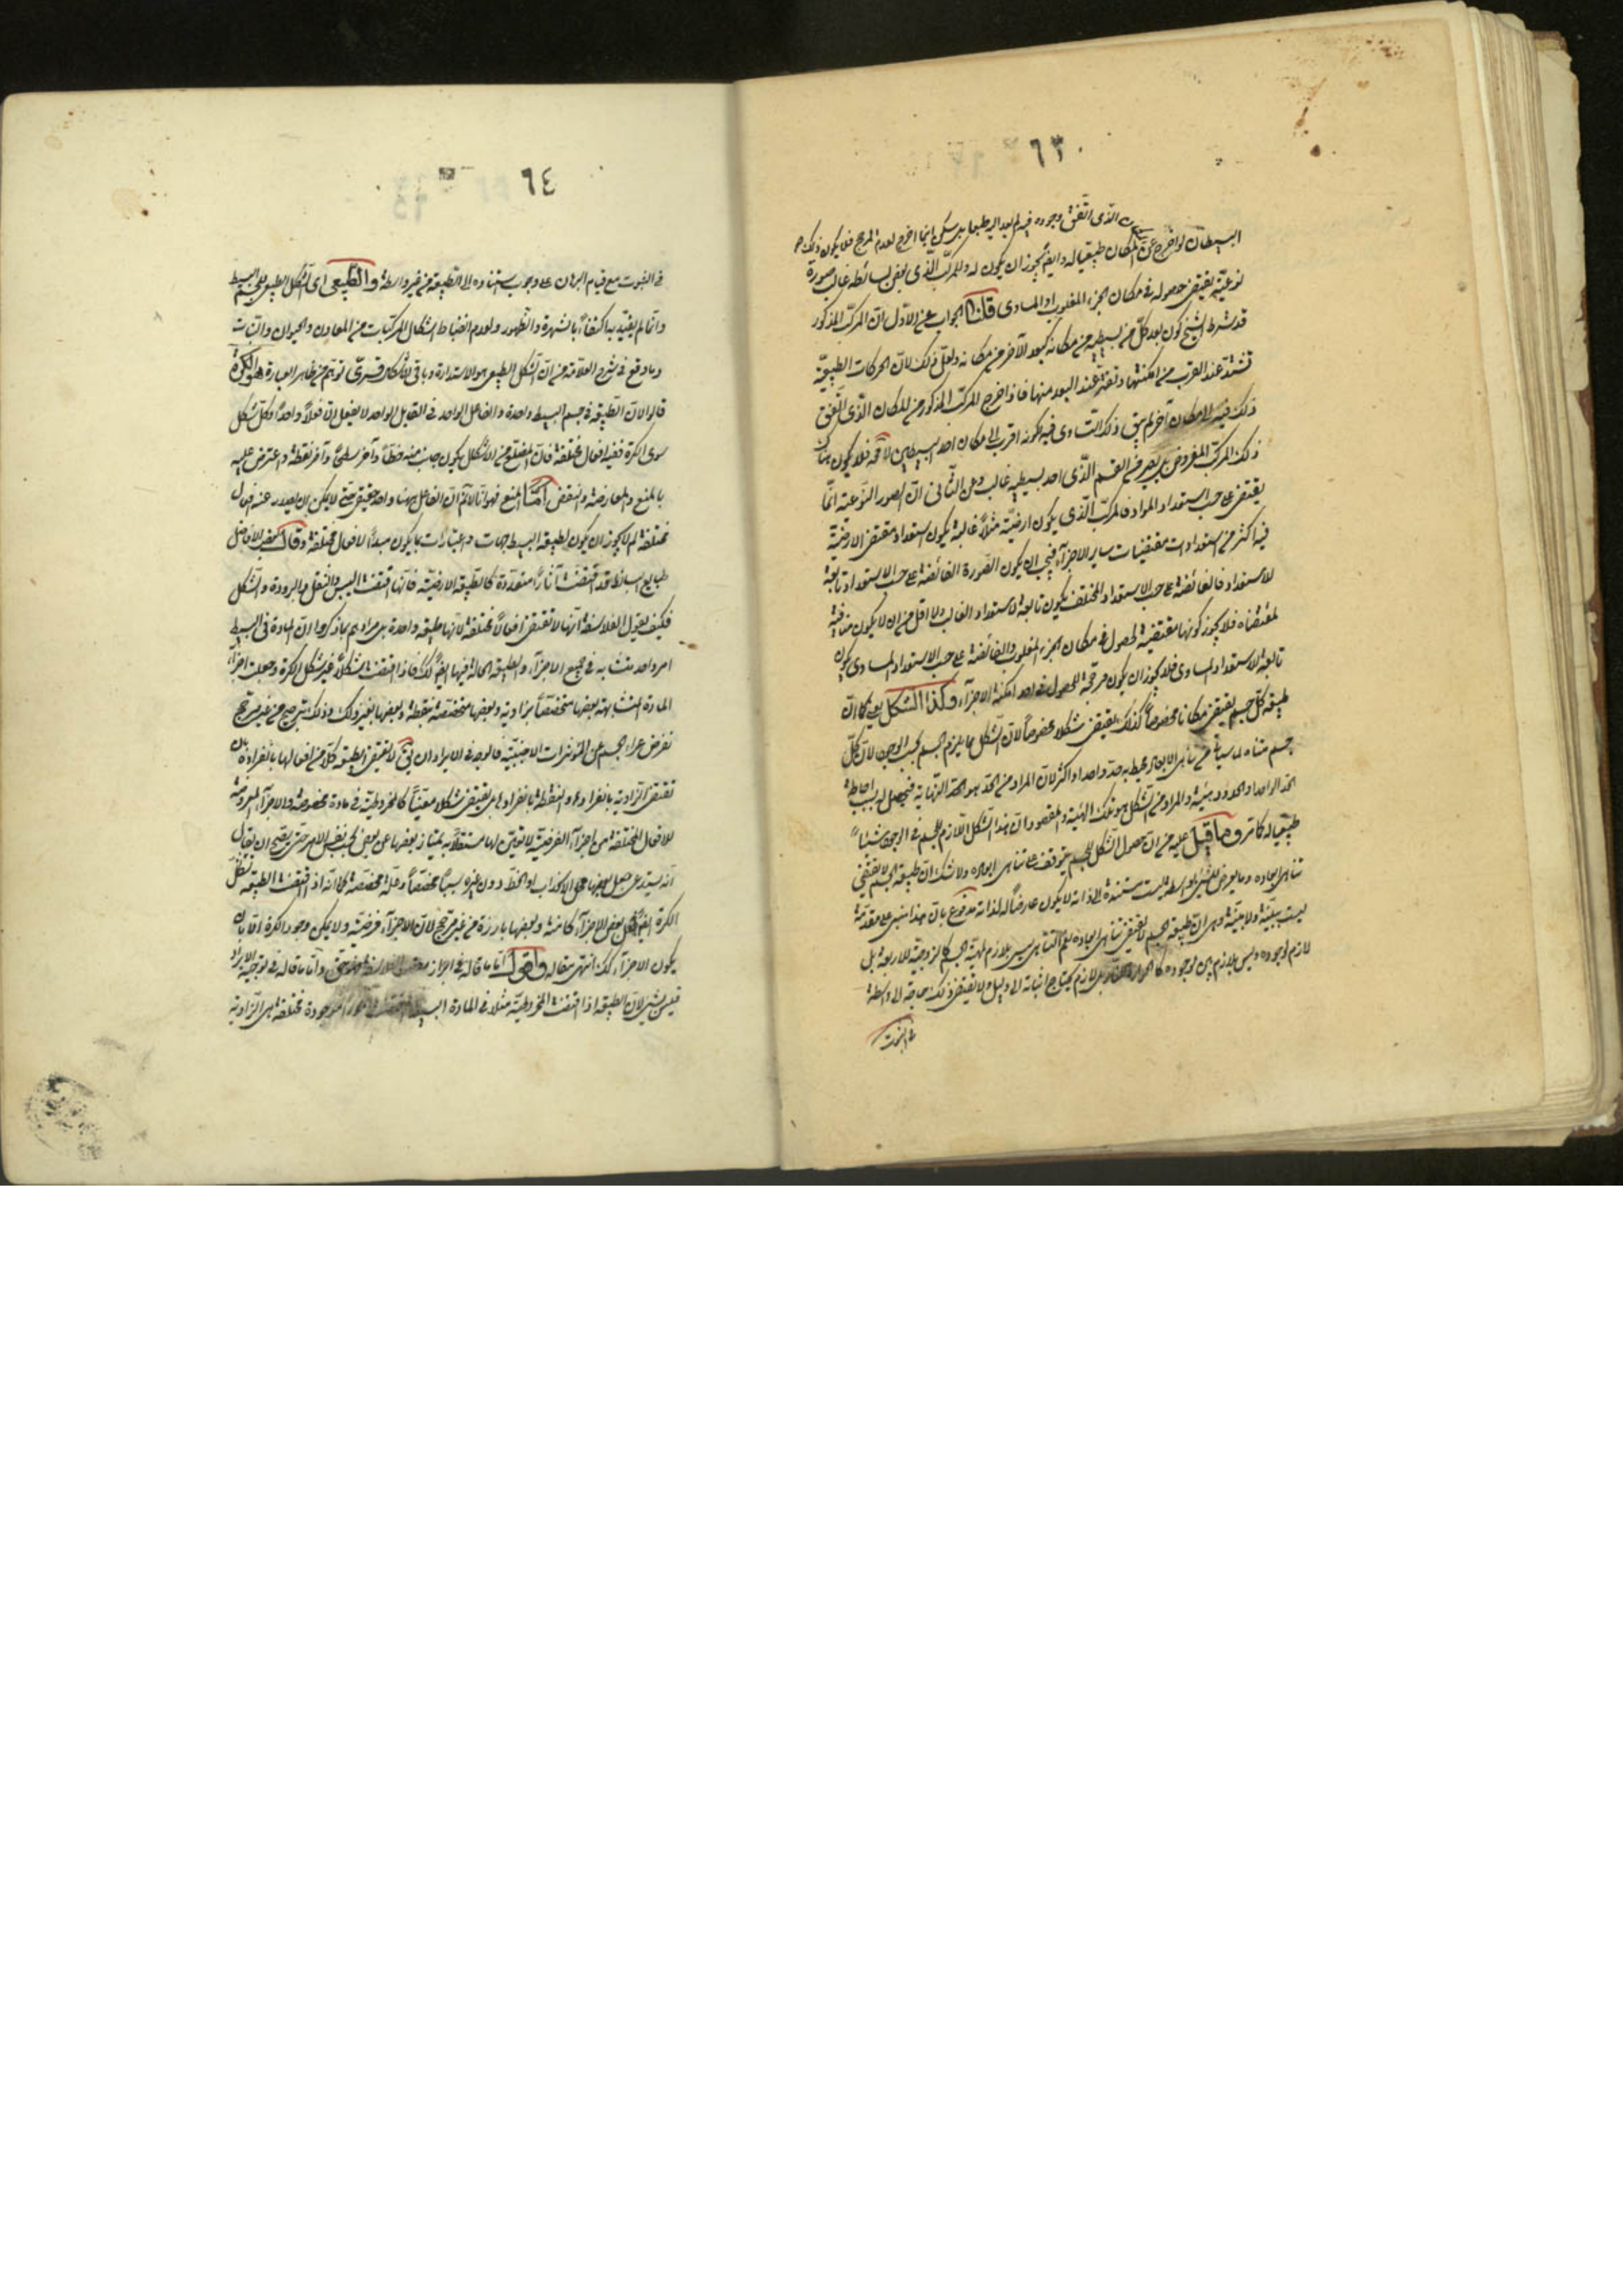 ٦٣
الذى اتفق وجوده فيه لم يعد اليه طبعا بل يسكن اينما اخرج لعدم المرجح فلا يكون ذلك
البسيطان لو اخرج عن المكان طبيعيا له وايضا يجوز ان يكون له وللمركب الذى بعض بسائطه غالب صورة
نوعية يقتضى حصوله فى مكان الجزء المغلوب او المساوى قلنا الجواب عن الاول ان المركب المذكور
قد شرط الشيخ كون بعد كل من بسيطيه من مكانه كبعد الآخر من مكانه ولعل ذلك لان الحركات الطبيعية
تشتد عند القرب من امكنتها وتفتر عند البعد منها فاذا اخرج المركب المذكور من المكان الذى اتفق
ذلك فيه الى مكان آخر لم يبق ذلك التساوى فيه لكونه اقرب الى مكان احد البسيطين لا محة فلا يكون هناك
ذلك المركب المفروض بل يصير من القسم الذى احد بسيطيه غالب وعن الثانى ان الصور النوعية انما
يقتضى على حسب استعداد المواد فالمركب الذى يكون ارضيته مثلا غالبة يكون استعداد مقتضى الارضية
فيه اكثر من استعدادات مقتضيات ساير الاجزاء فيجب ان يكون الصورة الفائضة على حسب الاستعداد تابعة
للاستعداد فالفائضة على حسب الاستعداد المختلف يكون تابعة لاستعداد الغالب ولا اقل من ان لا يكون منافية
لمقتضاه فلا يجوز كونها مقتضية لحصول فى مكان الجزء المغلوب والفائضة على حسب الاستعداد المساوى يكون
تابعة للاستعداد المساوى فلا يجوز ان يكون مرجحة للحصول فى احد امكنة الاجزاء وكذا الشكل يعنى كما ان
طبيعة كل جسم يقتضى مكانا مخصوصا كذلك يقتضى شكلا مخصوصا لان الشكل مما يلزم الجسم بحسب الوجود لان كل
جسم متناه لما سيأتى من تناهى الابعاد فيحيط به حد واحد او اكثر لان المراد من الحد هو الحد النهاية فيحصل له بسبب احاطة
الحد الواحد او الحدود هيئة والمراد من الشكل هو تلك الهيئة والمقصود ان هذا الشكل اللازم للجسم فى الوجود شيئا
طبيعيا له كما مر وما قيل عليه من ان حصول الشكل للجسم يتوقف على تناهى ابعاده ولا شك ان طبيعة الجسم لا تقتضى
تناهى ابعاده وما يعرض للشئ بواسطة ليست مستندة الى ذاته لا يكون عارضا له لذاته مدفوع بان هذا مبنى على مقدمة
ليست بينة ولا مبينة وهى ان طبيعة الجسم لا تقتضى تناهى ابعاده نعم التناهى ليس بلازم لمهية الجسم كالزوجية للاربعة بل
لازم لوجوده وليس بلازم بين لوجوده كالحرارة للنار بل لازم يحتاج اثباته الى دليل ولا تقتضى ذلك حاجة الى واسطة
فى الثبوت
٦٤
فى الثبوت مع قيام البرهان على وجوب استناده الى الطبيعة من غير واسطة والطبيعى اى الشكل الطبيعى للجسم البسيط
وانما لم يقيد به اكتفاء بالشهرة والظهور ولعدم انضباط اشكال المركبات من المعادن والحيوان والنبات
وما وقع فى شرح العلامة من ان الشكل الطبيعى هو الاستدارة وباقى الاشكال قسرى توهم من ظاهر العبارة هو الكرة
قالوا لان الطبيعة فى جسم البسيط واحدة والفاعل الواحد فى القابل الواحد لا يفعل الا فعلا واحدا وكل شكل
سوى الكرة ففيه افعال مختلفة فان المضلع من الاشكال يكون جانب منه خطا وآخر سطحا وآخر نقطة واعترض عليه
بالمنع والمعارضة والنقض اما المنع فهو انا لا نم ان الفاعل هنا واحد حقيقى حتى لا يمكن ان يصدر عنه افعال
مختلفة لم لا يجوز ان يكون لطبيعة البسيط جهات واعتبارات بها يكون مبدءا لافعال مختلفة وقال بعض الافاضل
طبايع البسائط قد اقتضت آثارا متعددة كالطبيعة الارضية فانها اقتضت اليبس والثقل والبرودة والشكل
فكيف يقول الفلاسفة انها لا تقتضى افعالا مختلفة لانها طبيعة واحدة بل مرادهم بما ذكروا ان المادة فى البسيط
امر واحد متشابه فى جميع الاجزاء والطبيعة الحالة فيها ايضا كك فاذا اقتضت شكلا غير شكل الكرة وجعلت اجزاء
المادة المتشابهة بعضها متخصصا بزاوية وبعضها متخصصة بنقطة وبعضها بغير ذلك وذلك ترجيح من غير مرجح
نفرض عراء الجسم عن المؤثرات الاجنبية فالوجه فى الايراد ان يق لا تقتضى الطبيعة كلا من افعالها بانفراده بان
تقتضى الزاوية بانفرادها والنقطة بانفرادها بل يقتضى شكلا معينا كالمخروطية فى مادة مخصوصة والاجزاء المعروضة
للافعال المختلفة هى اجزاء الفرضية لا تعين لها مستقلا به يمتاز بعضها عن بعض بحسب نفس الامر حتى يصح ان يقال
انه يستدعى جعل بعضها محل الانحداب او الخط دون غيره سببا مخصصا وعلة مخصصة كما انه اذا اقتضت الطبيعة شكل
الكرة ايضا جعل بعض الاجزاء كامنة وبعضها بارزة من غير مرجح لان الاجزاء فرضية ولا يمكن وجود الكرة الا بان
يكون الاجزاء كك انتهى مقاله واقول اما ما قاله فى ابراز مقصد الفلاسفة فهو حق واما ما قاله فى توجيه الايراد
فليس بشئ لان الطبيعة اذا اقتضت المخروطية مثلا فى المادة البسيطة اقتضت امورا موجودة مختلفة هى الزاوية